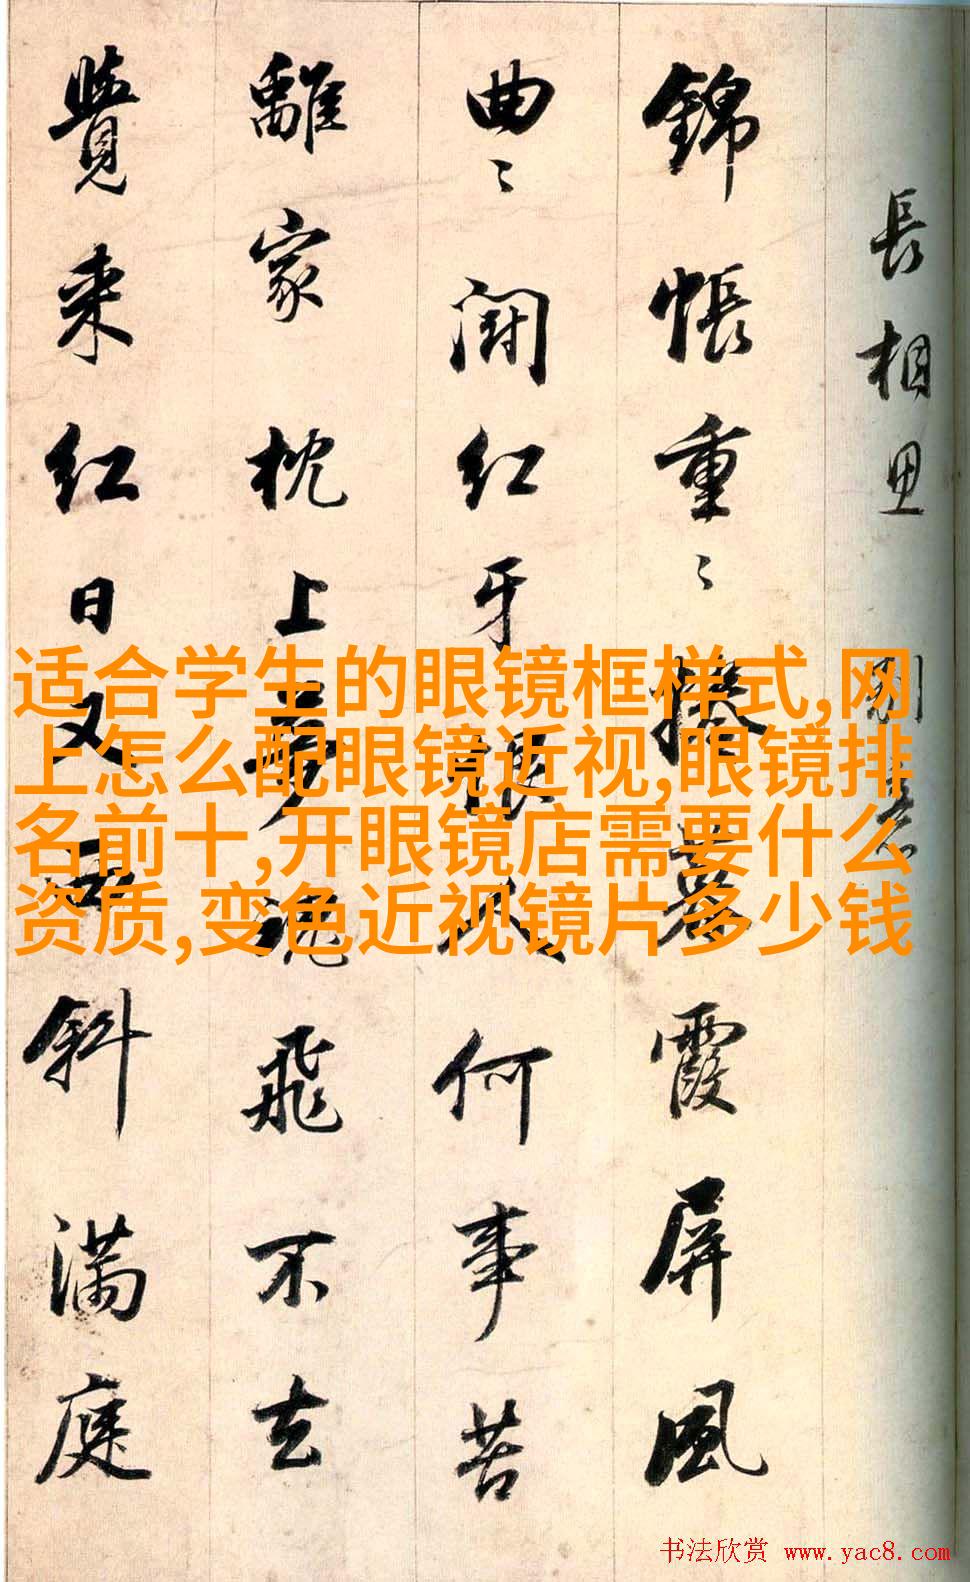 長相思 別意
錦帳重〻捲暮霞屏風
曲〻鬪紅牙恨人何事苦
離家枕上夢魂飛不去
覺來紅日又西斜滿庭
适合学生的眼镜框样式,网
上怎么配眼镜近视,眼镜排
名前十,开眼镜店需要什么
资质,变色近视镜片多少钱
书法欣赏 www.yac8.com